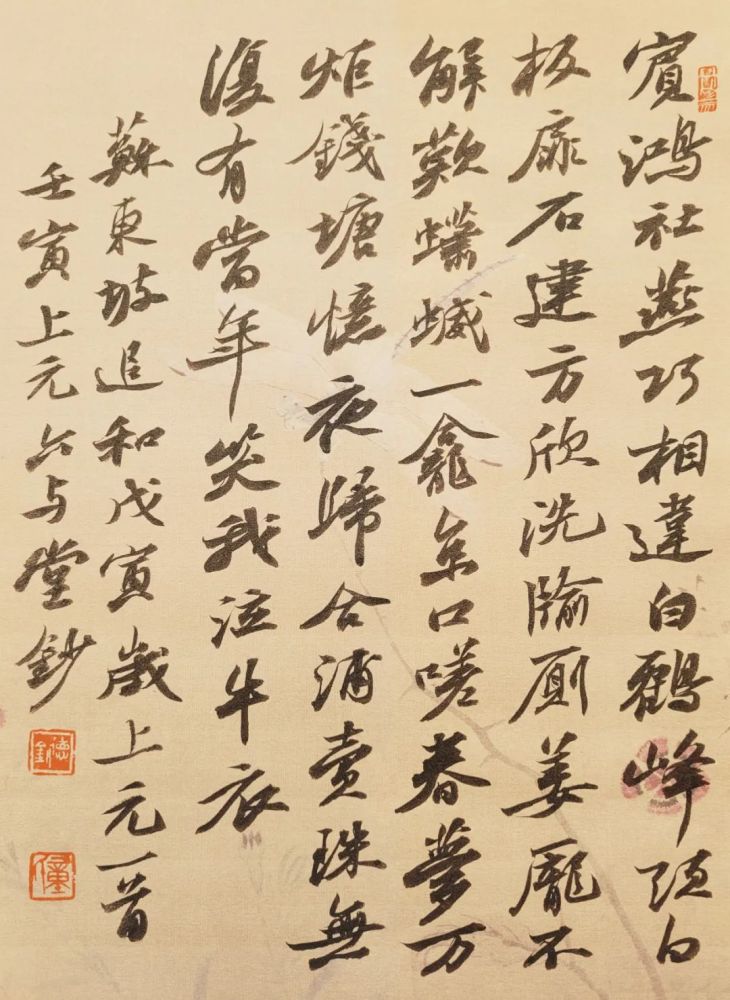 賓鴻社燕巧相違白鶴峰頭白
板扉石建方欣洗牏廁姜龐不
解歎蠨蝛一龕京口嗟春夢万
炬錢塘憶夜歸合浦賣珠無
復有當年笑我泣牛衣
蘇東坡追和戊寅歲上元一首
壬寅上元六与堂鈔